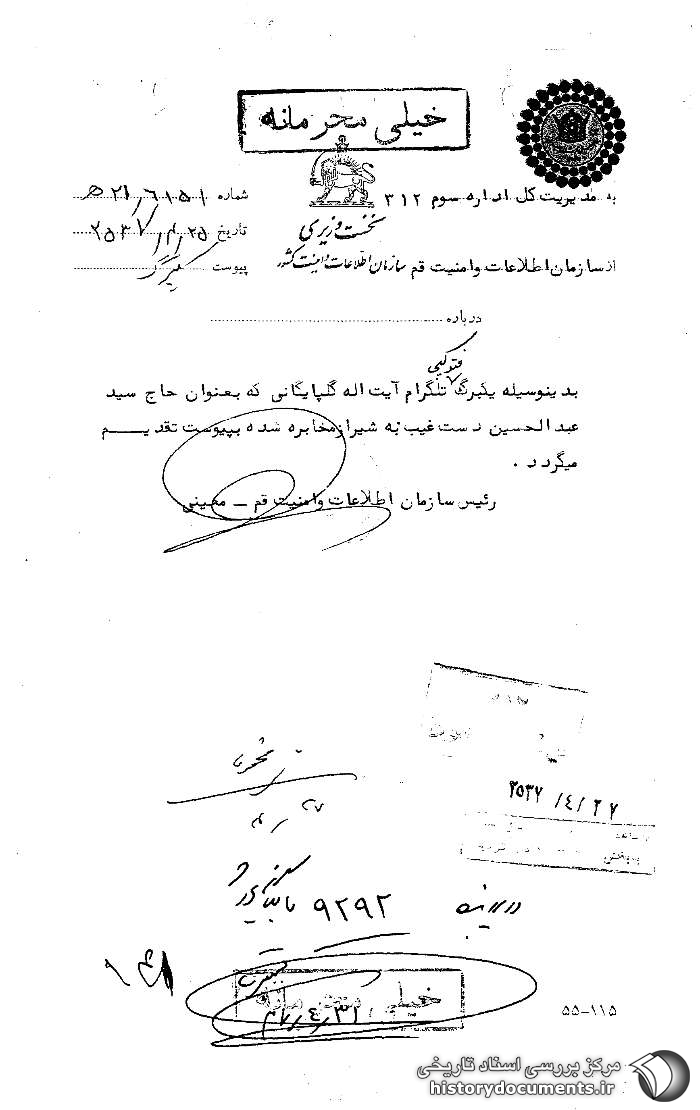 خیلی محرمانه
به مدیریت کل اداره سوم ۳۱۲
شماره ۲۱/۶۱۵۱ ه
نخست وزیری
تاریخ ۲۵۳۷/۴/۲۵
از سازمان اطلاعات و امنیت قم
سازمان اطلاعات و امنیت کشور
پیوست
درباره
فتوکپی
بدینوسیله یکبرگ تلگرام آیت اله گلپایگانی که بعنوان حاج سید
عبدالحسین دست غیب به شیراز مخابره شده بپیوست تقدیم
میگردد .
رئیس سازمان اطلاعات و امنیت قم – معینی
۲۵۳۷/۴/۲۷
۲۷/۴
۹۲۹۲
خیلی محرمانه
۳۷/۴/۳۱
۵۵-۱۱۵
مرکز بررسی اسناد تاریخی
historydocuments.ir